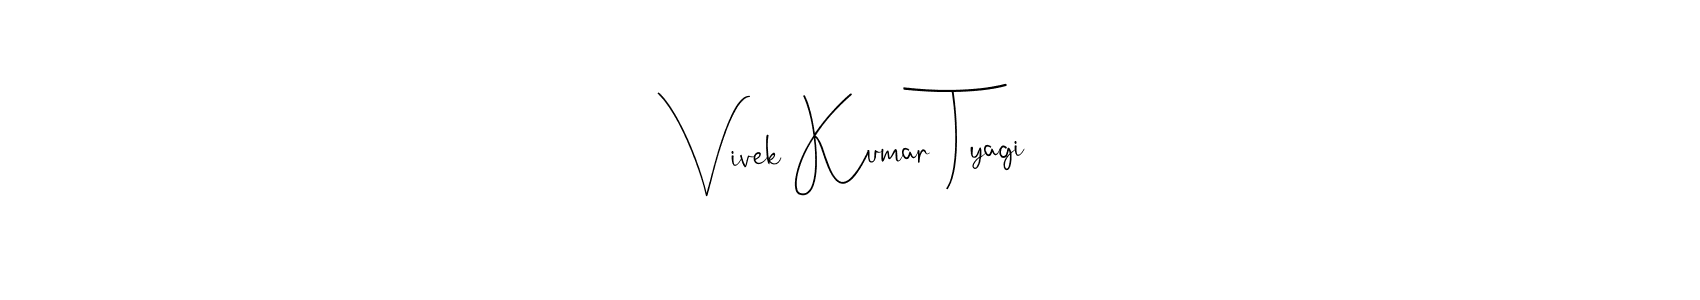 Vivek Kumar Tyagi